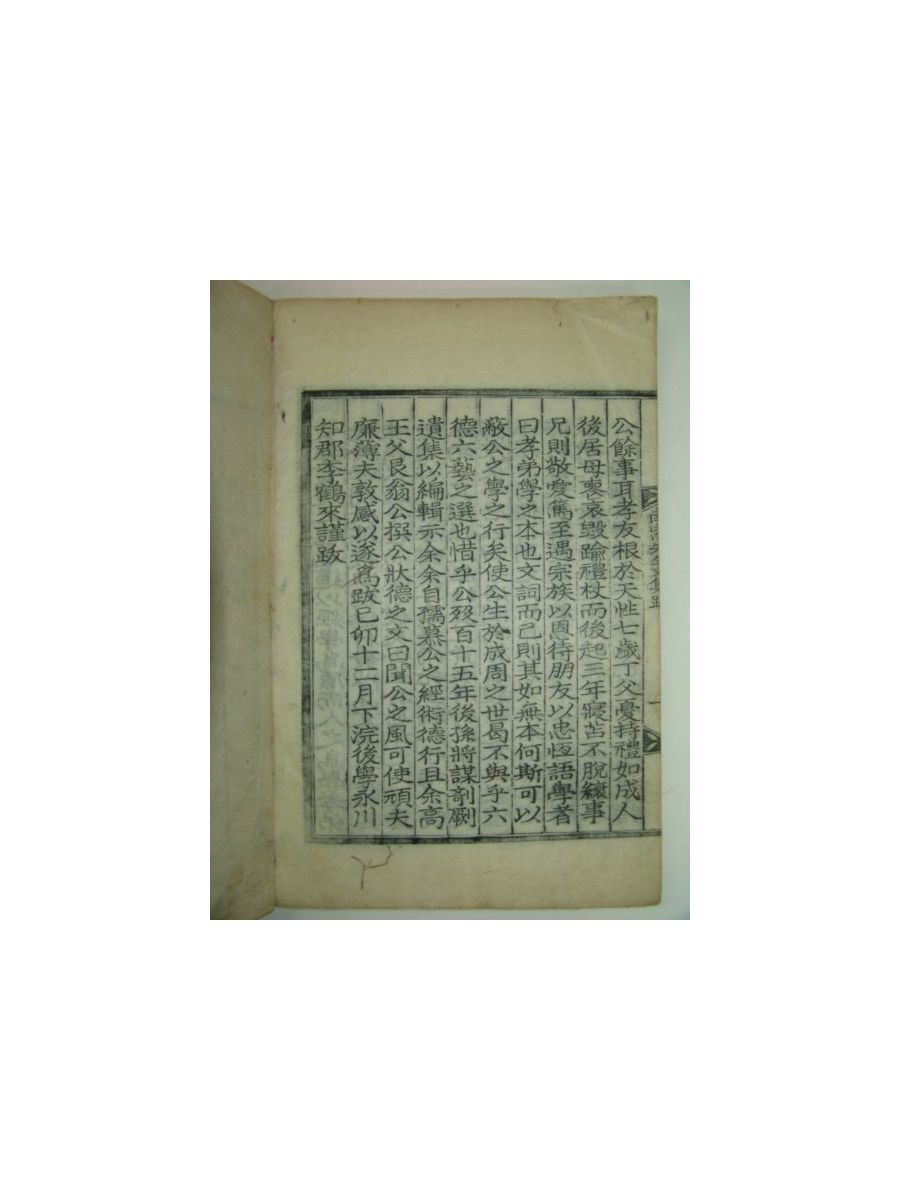 公餘事耳孝友根於天性七歲丁父憂持禮如成人
後居母喪哀毀踰禮杖而後起三年寢苫不脫縗事
兄則敬愛篤至遇宗族以恩待朋友以忠恆語學者
曰孝弟學之本也文詞而已則其如無本何斯可以
蔽公之學之行矣使公生於成周之世曷不與乎六
德六藝之選也惜乎公歿百十五年後孫將謀剞劂
遺集以編輯示余余自孺慕公之經術德行且余高
王父艮翁公撰公狀德之文曰聞公之風可使頑夫
廉薄夫敦感以遂爲跋己卯十二月下浣後學永川
知郡李鶴來謹跋